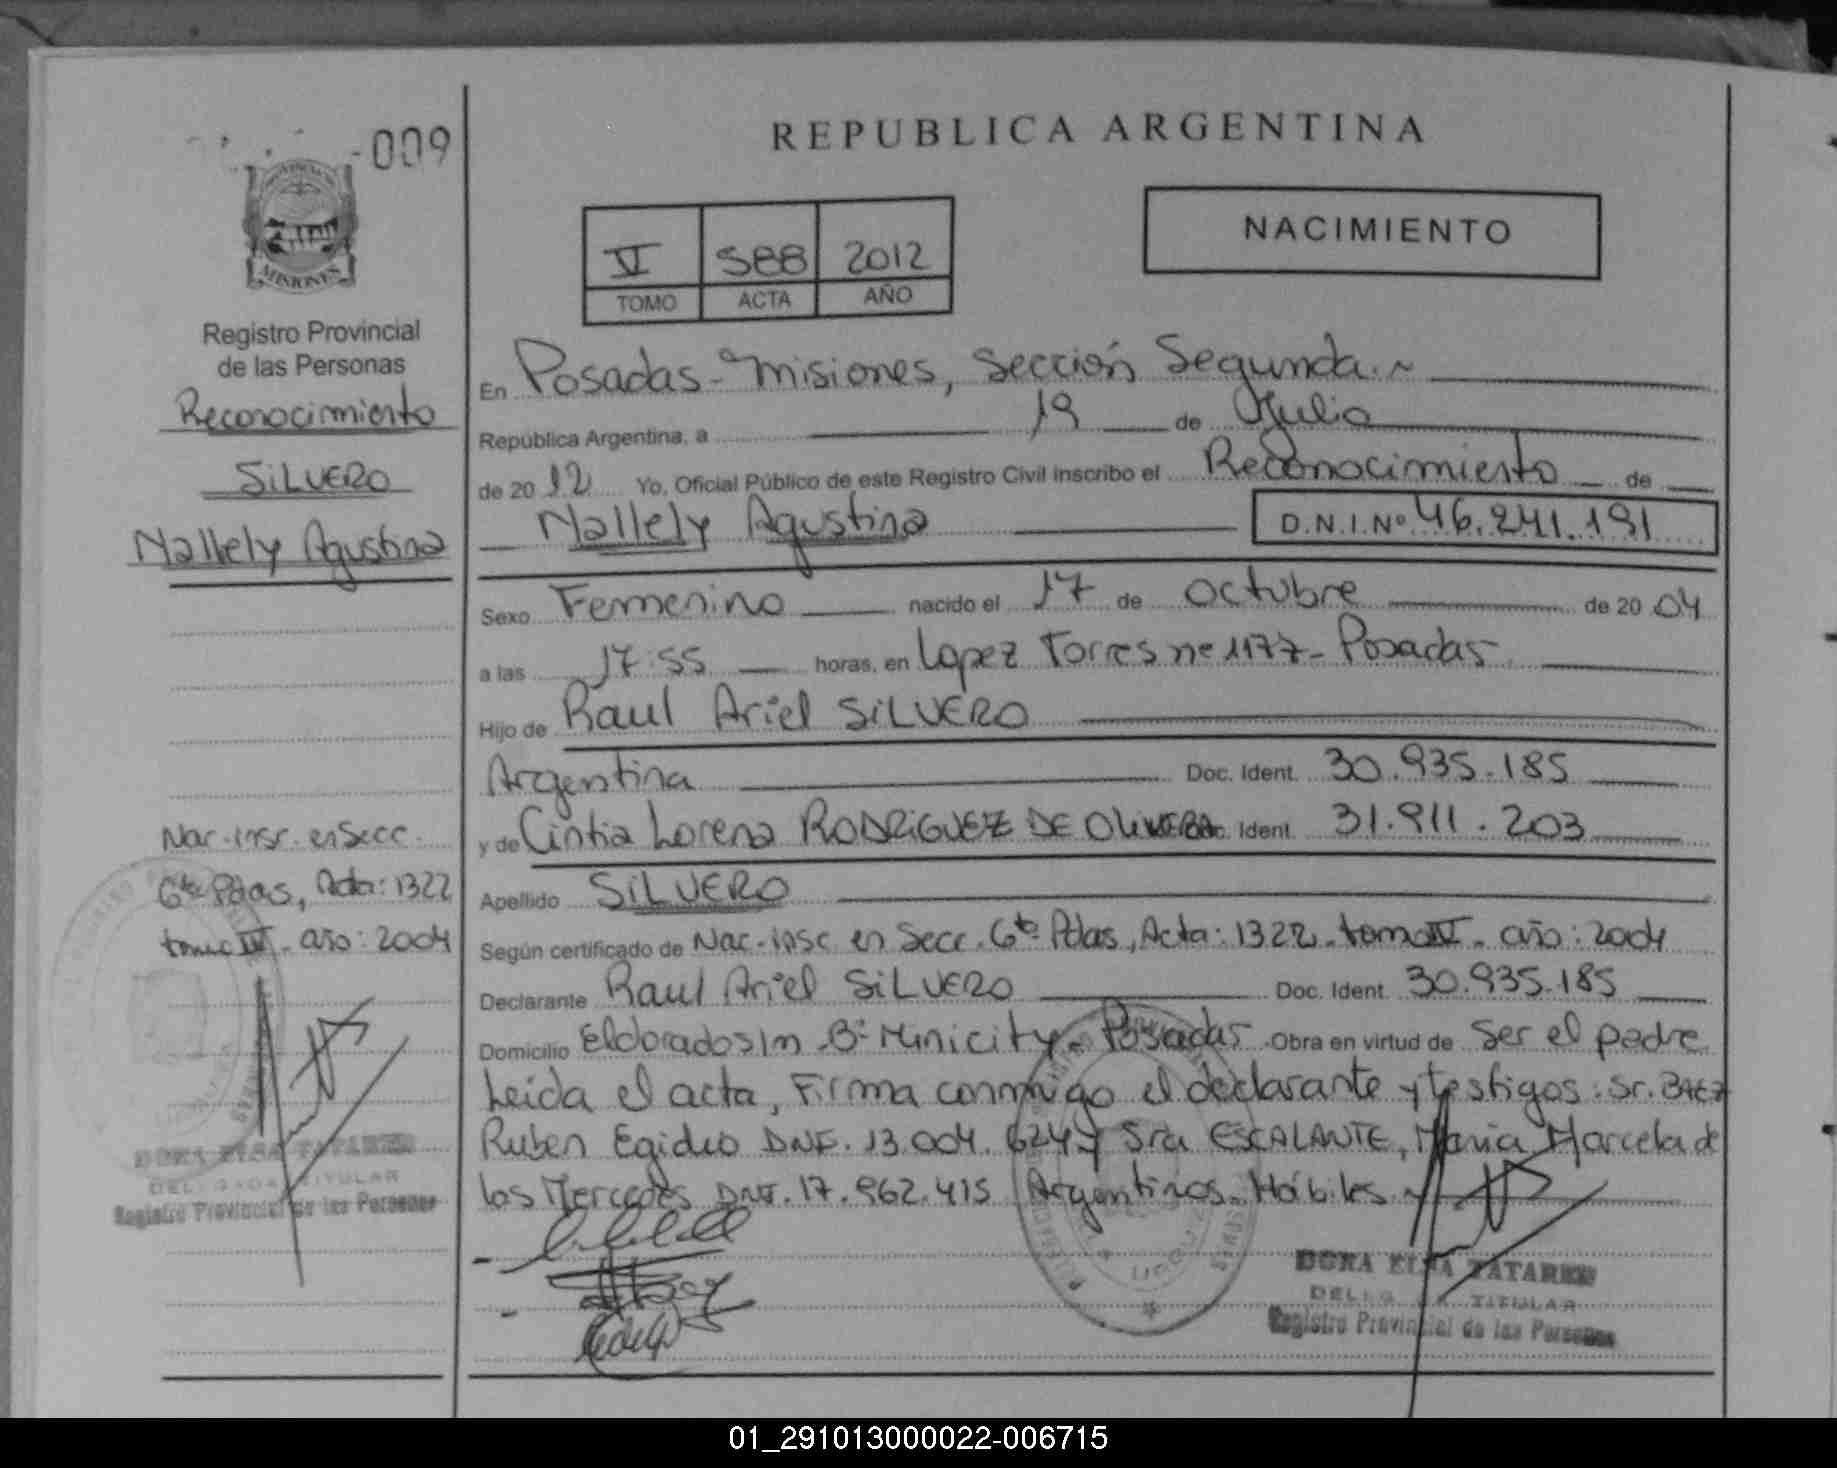 -009
REPUBLICA ARGENTINA
MISIONES
Registro Provincial
de las Personas
Reconocimiento
SiLVERO
Nallely Agustina
VI 588 2012
TOMO ACTA AÑO
NACIMIENTO
En Posadas - Misiones, Sección Segunda.
República Argentina, a 19 de Julio
de 2012 Yo, Oficial Público de este Registro Civil inscribo el Reconocimiento de
Nallely Agustina D.N.I.Nº 46.241.191
Sexo Femenino nacido el 17 de octubre de 2004
a las 17:55 horas, en Lopez Torres nº 1177 - Posadas
Hijo de Raul Ariel SiLVERO
Argentina Doc. Ident. 30.935.185
y de Cintia Lorena RODRiGUEZ DE OLiVERA Doc. Ident. 31.911.203
Apellido SiLVERO
Según certificado de Nac. insc en Secc. 6ta Pdas, Acta: 1322 - tomo IV - año: 2004
Declarante Raul Ariel SiLVERO Doc. Ident. 30.935.185
Domicilio Eldorado s/n - Bº Minicity - Posadas Obra en virtud de Ser el padre
Leida el acta, Firma conmigo el declarante y testigos: Sr.
Ruben Egidio DNI. 13.004.624 y Sra ESCALANTE, Maria Marcela de
las Mercedes DNI. 17.962.415 Argentinos. Hábiles
Nac. insc. en Secc.
6ta Pdas, Acta: 1322
tomo IV - año: 2004
DORA ELSA TATAREN
DELEGADA TITULAR
Registro Provincial de las Personas
DORA ELSA TATAREN
DELEGADA TITULAR
Registro Provincial de las Personas
01_291013000022-006715